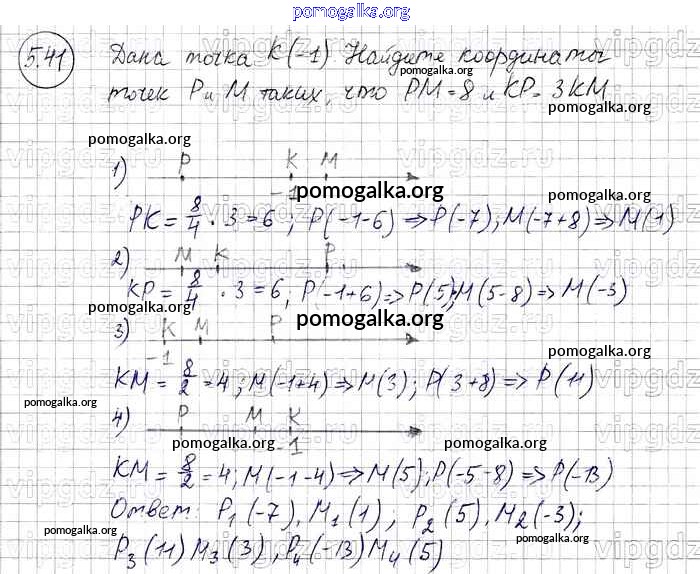 pomogalka.org
5.41 Дана точка K(-1) Найдите координаты
pomogalka.org
точек P и M таких, что PM = 8 и KP = 3KM
pomogalka.org
pomogalka.org
1) P K M
-1
pomogalka.org
PK = 8/4 · 3 = 6 ; P(-1-6) => P(-7); M(-7+8) => M(1)
2) M K P
pomogalka.org
KP = 8/4 · 3 = 6; P(-1+6) => P(5); M(5-8) => M(-3)
pomogalka.org
pomogalka.org
3) K M P
-1
pomogalka.org
KM = 8/2 = 4; M(-1+4) => M(3); P(3+8) => P(11)
pomogalka.org
4) P M K
-1
pomogalka.org
pomogalka.org
KM = 8/2 = 4; M(-1-4) => M(5); P(-5-8) => P(-13)
Ответ: P1(-7), M1(1); P2(5), M2(-3);
pomogalka.org
P3(11) M3(3), P4(-13) M4(5)
pomogalka.org
pomogalka.org